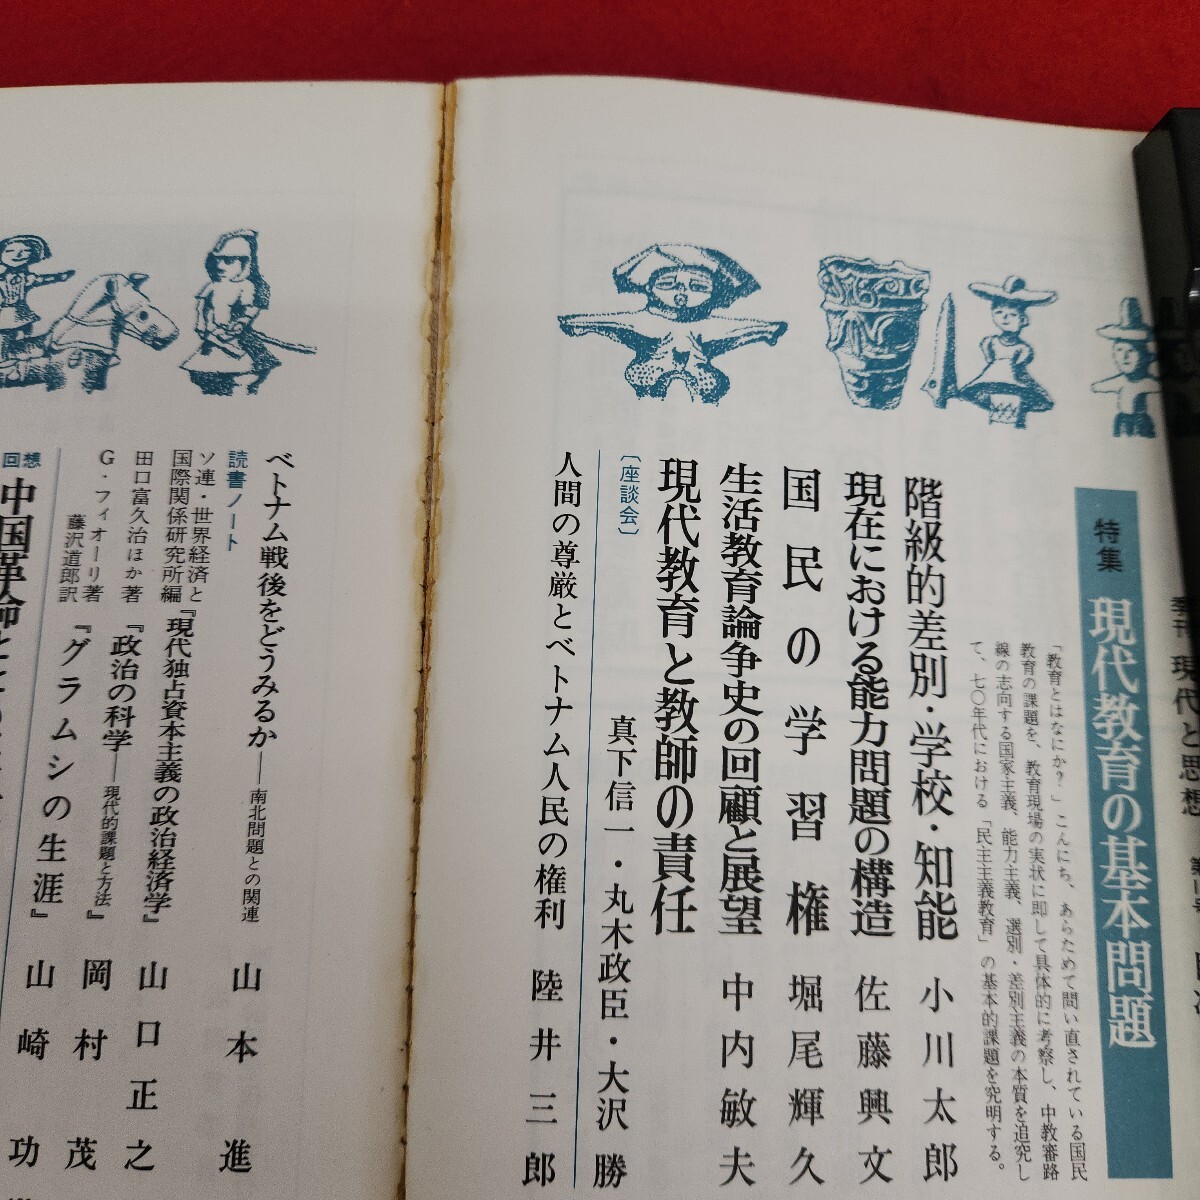 季刊 現代と思想
特集 現代教育の基本問題
「教育とはなにか?」こんにち、あらためて問い直されている国民
教育の課題を、教育現場の実状に即して具体的に考察し、中教審路
線の志向する国家主義、能力主義、選別・差別主義の本質を追究し
て、七〇年代における「民主主義教育」の基本的課題を究明する。
階級的差別・学校・知能 小川太郎
現在における能力問題の構造 佐藤興文
国民の学習権 堀尾輝久
生活教育論争史の回顧と展望 中内敏夫
現代教育と教師の責任
〔座談会〕
真下信一・丸木政臣・大沢勝
人間の尊厳とベトナム人民の権利 陸井三郎
ベトナム戦後をどうみるか——南北問題との関連 山本進
読書ノート
ソ連・世界経済と
国際関係研究所編
『現代独占資本主義の政治経済学』 山口正之
田口富久治ほか著
『政治の科学——現代的課題と方法』 岡村茂
G・フィオーリ著
藤沢道郎訳
『グラムシの生涯』 山崎功
回想
中国革命と